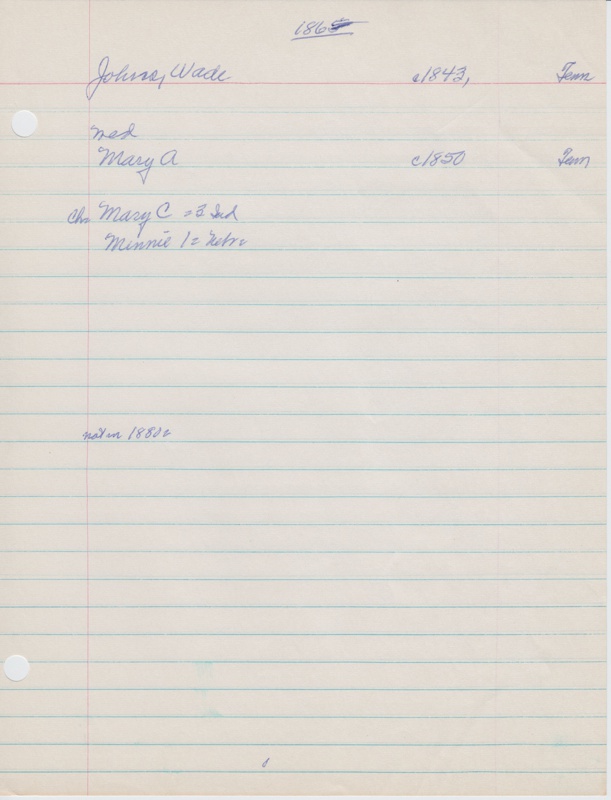 186
Johns, Wade c1843, Tenn
med
Mary A c1850 Tenn
Ch. Mary C = 3 Ind
Minnie 1 = Nebr
not in 1880